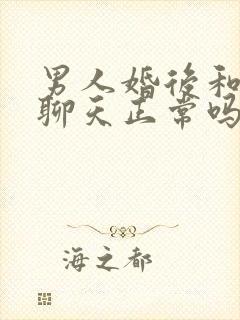 男人婚後和
聊天正常吗
海之都